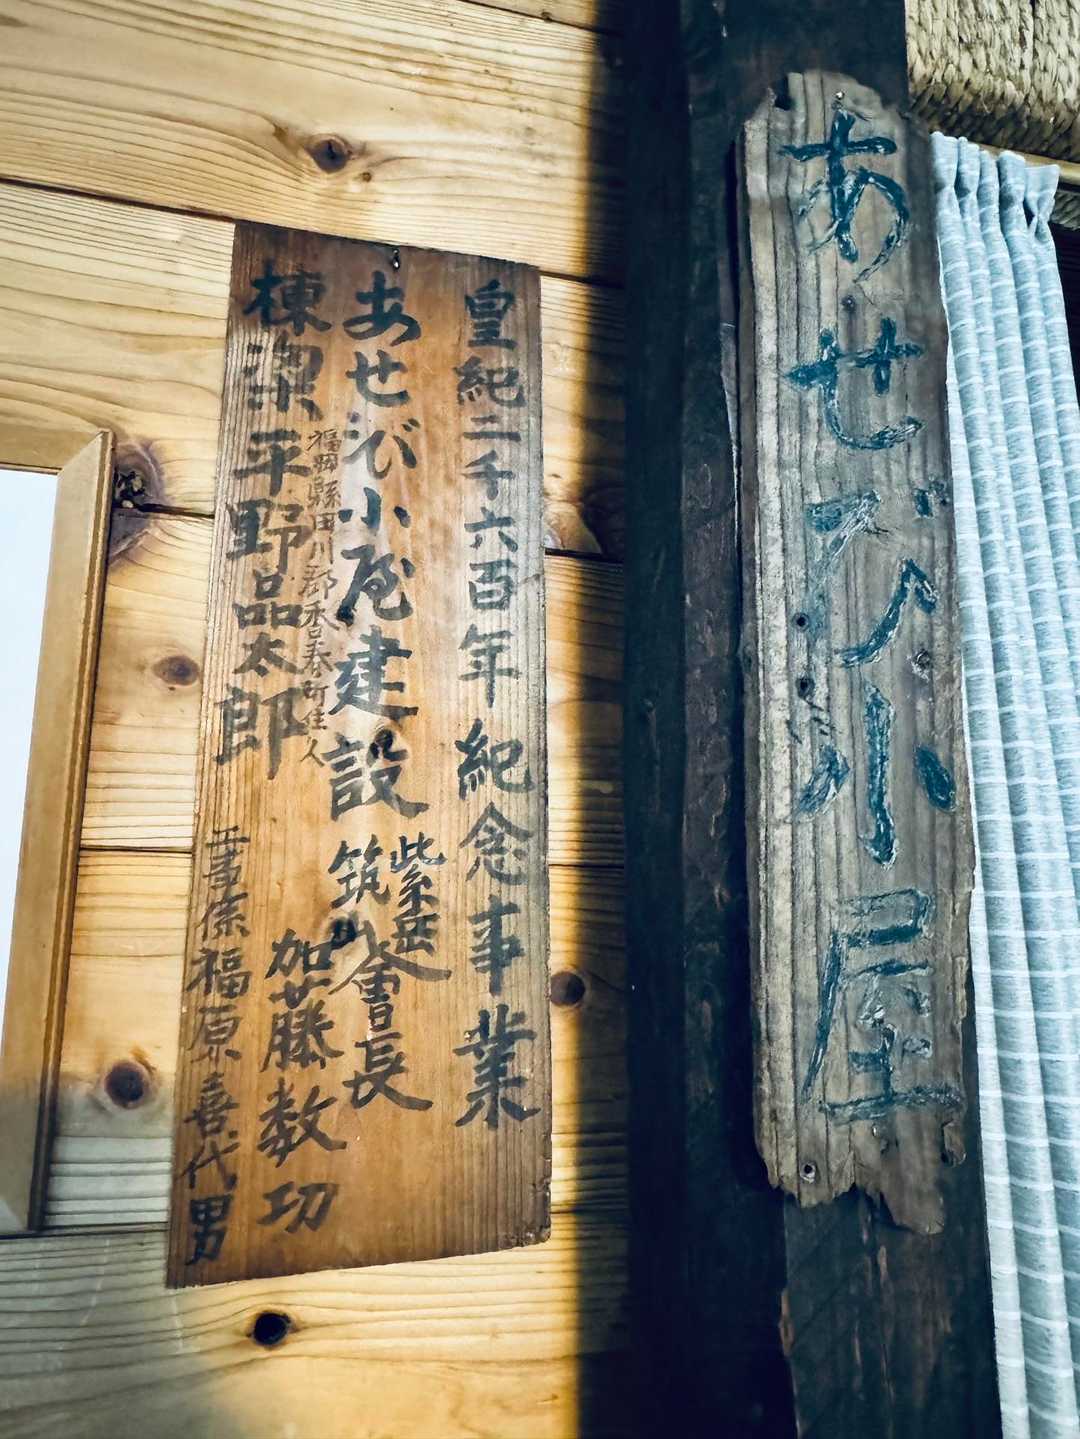 あせび小屋
皇紀二千六百年紀念事業
あせび小屋建設
筑紫山岳會長
加藤数功
福岡縣田川郡香春町住人
棟梁平野品太郎
工事係福原喜代男